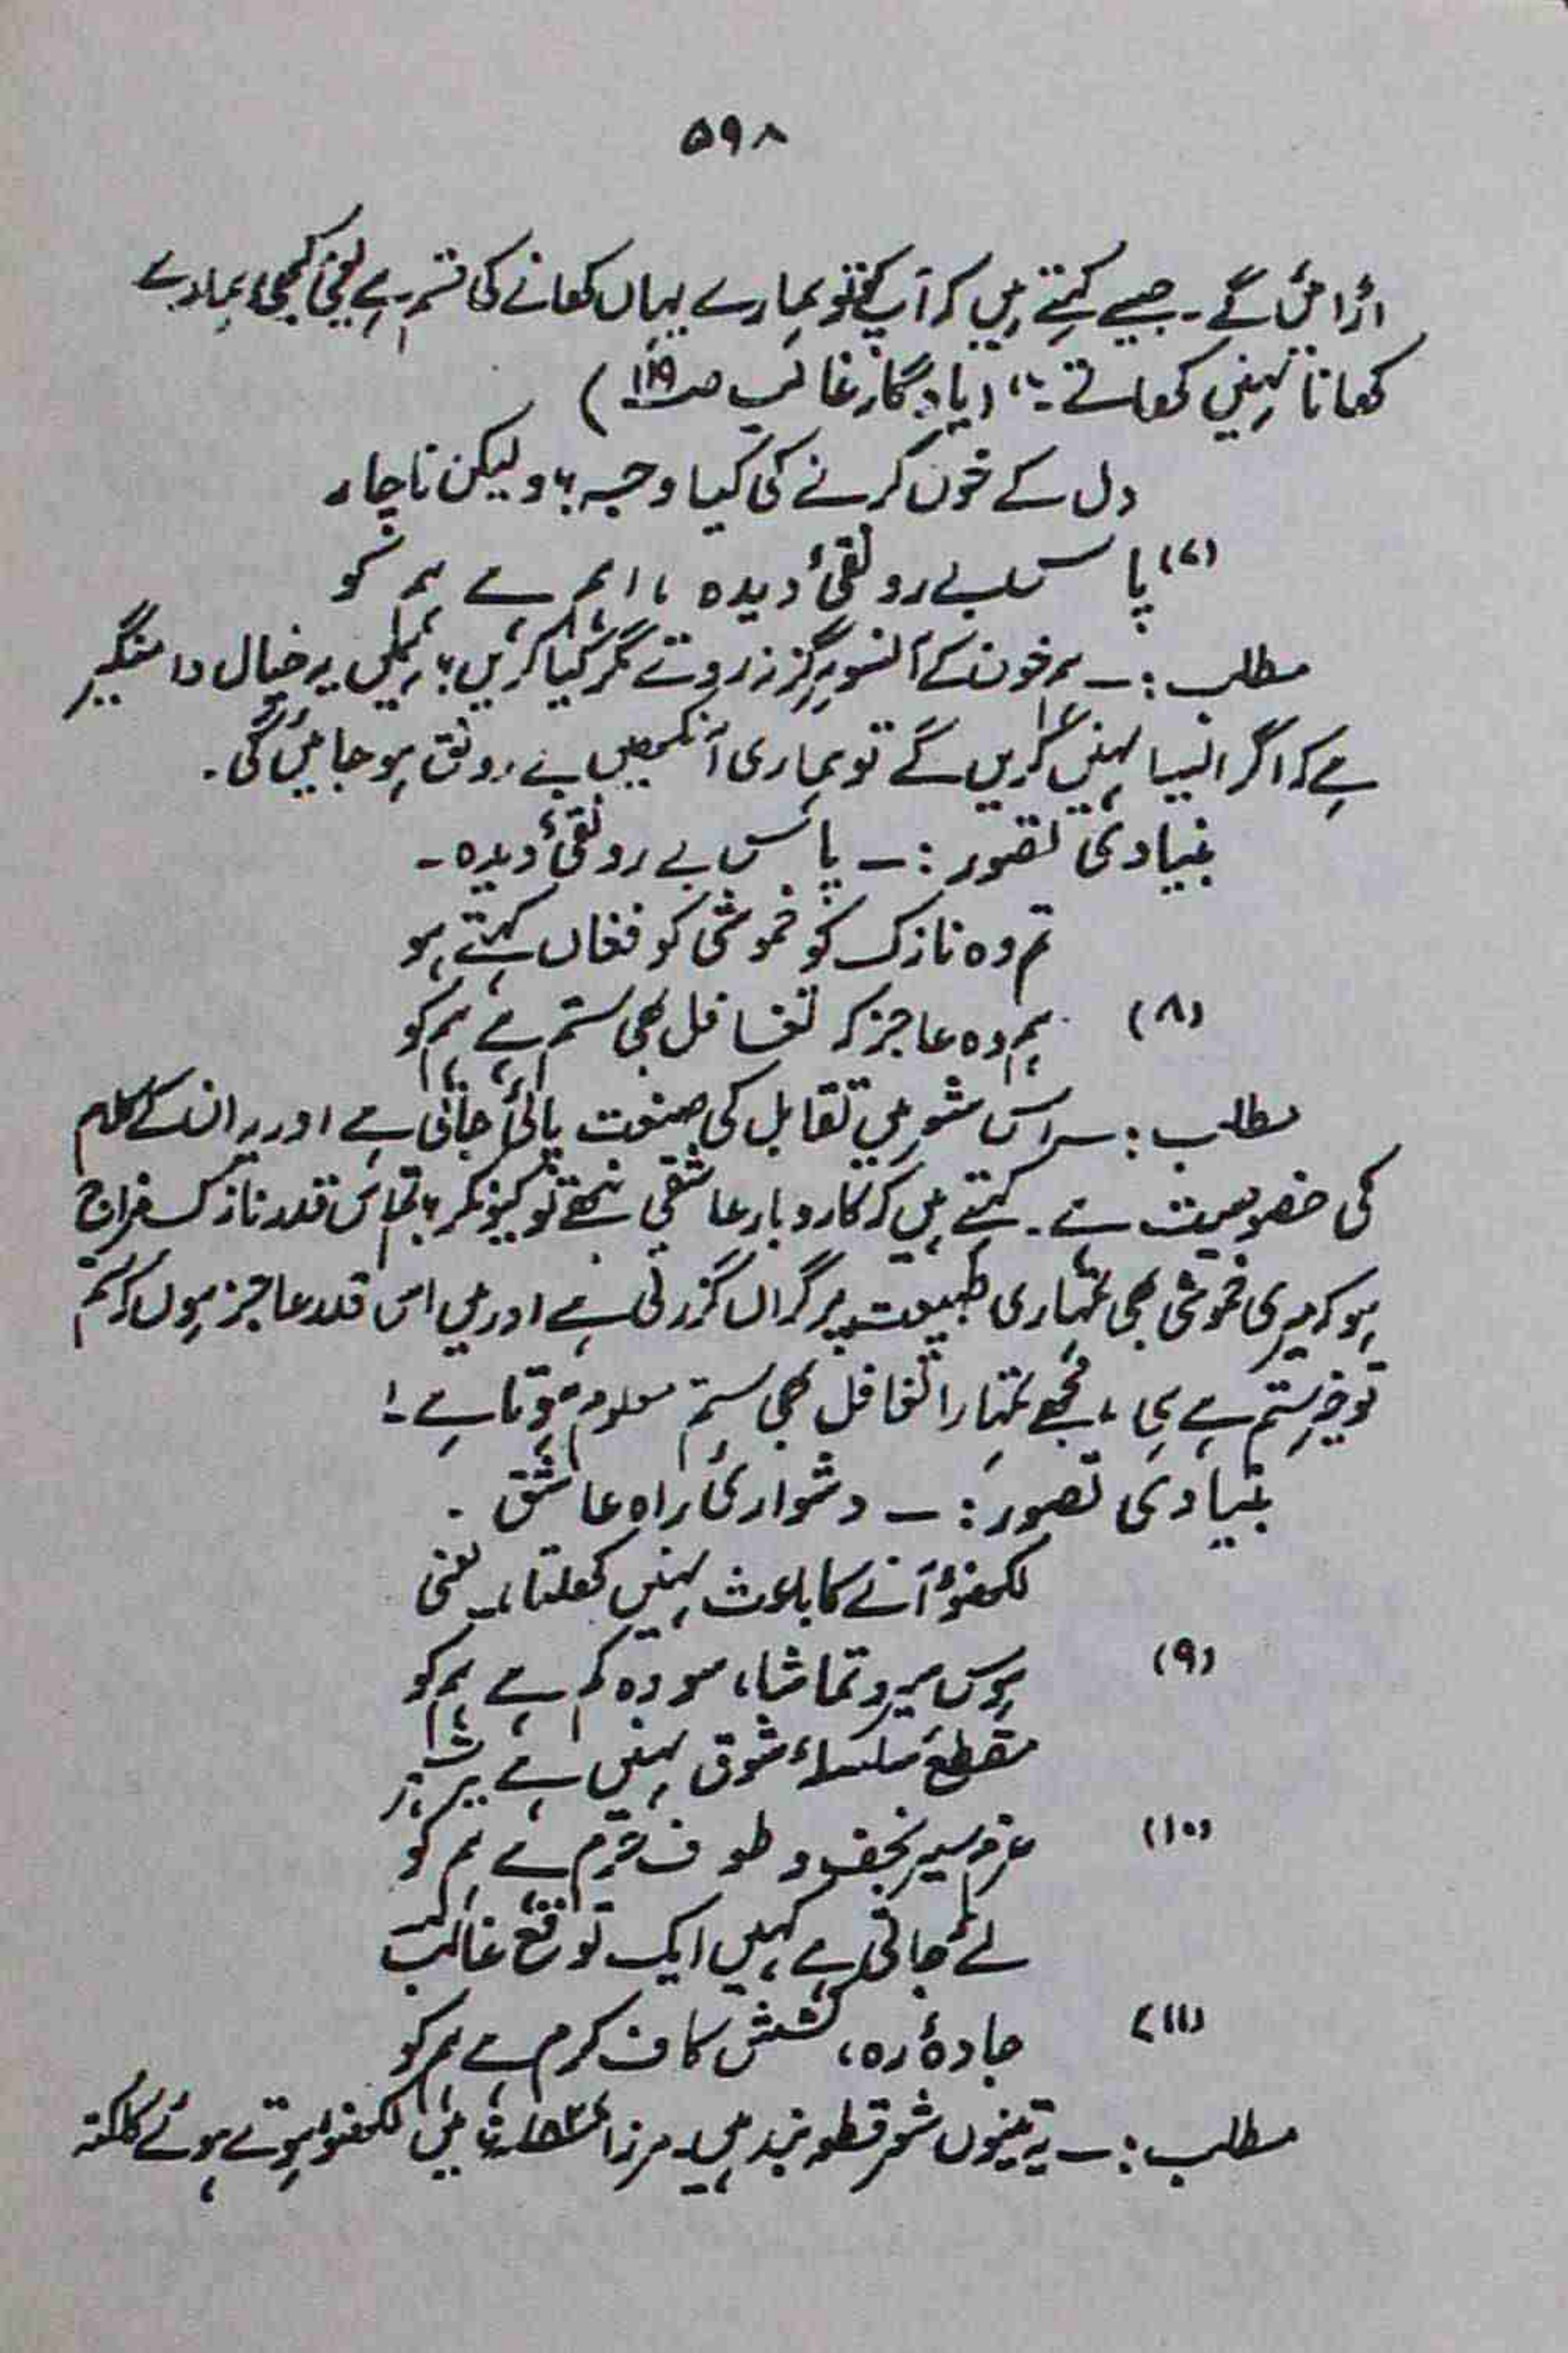 ۵۹۸
اڑائیں گے۔ جیسے کہتے ہیں کہ آپ کو تو ہمارے یہاں کھانے کی قسم ہے یعنی کبھی ہمارے
کھانا نہیں کھاتے۔" (یادگار غالب صہ ۱۱۹)
دل کے خون کرنے کی کیا وجہ؟ ولیکن ناچار
(۷) پاس بے رونقیٔ دیدہ، اہم ہے ہم کو
مطلب:۔ ہم خون کے آنسو ہرگز نہ روتے مگر کیا کریں؟ ہمیں یہ خیال دامنگیر
ہے کہ اگر ایسا نہیں کریں گے تو ہماری آنکھیں بے رونق ہو جائیں گی۔
بنیادی تصور:۔ پاس بے رونقیٔ دیدہ۔
تم وہ نازک کو خموشی کو فغاں کہتے ہو
(۸) ہم وہ عاجز کہ تغافل بھی ستم ہے ہم کو
مطلب:۔ اس شعر میں تقابل کی صنعت پائی جاتی ہے اور یہ ان کے کلام
کی خصوصیت ہے۔ کہتے ہیں کہ کاروبار عاشقی نبھے تو کیونکر؟ تم اس قدر نازک مزاج
ہو کہ میری خموشی بھی تمہاری طبیعت پر گراں گزرتی ہے اور میں اس قدر عاجز ہوں کہ ستم
تو خیر ستم ہے ہی، مجھے تمہارا تغافل بھی ستم معلوم ہوتا ہے۔!
بنیادی تصور:۔ دشواریٔ راہ عاشق۔
لکھنؤ آنے کا باعث نہیں کھلتا، یعنی
(۹) ہوس سیر و تماشا، سو وہ کم ہے ہم کو
مقطع سلسلۂ شوق نہیں ہے یہ شہر
(۱۰) عزم سیر نجف و طوف حرم ہے ہم کو
لئے جاتی ہے کہیں ایک توقع غالب
(۱۱) جادۂ رہ، کشش کاف کرم ہے ہم کو
مطلب:۔ یہ تینوں شعر قطعہ بند ہیں۔ مرزا میں لکھنؤ ہوتے ہوئے کلکتہ